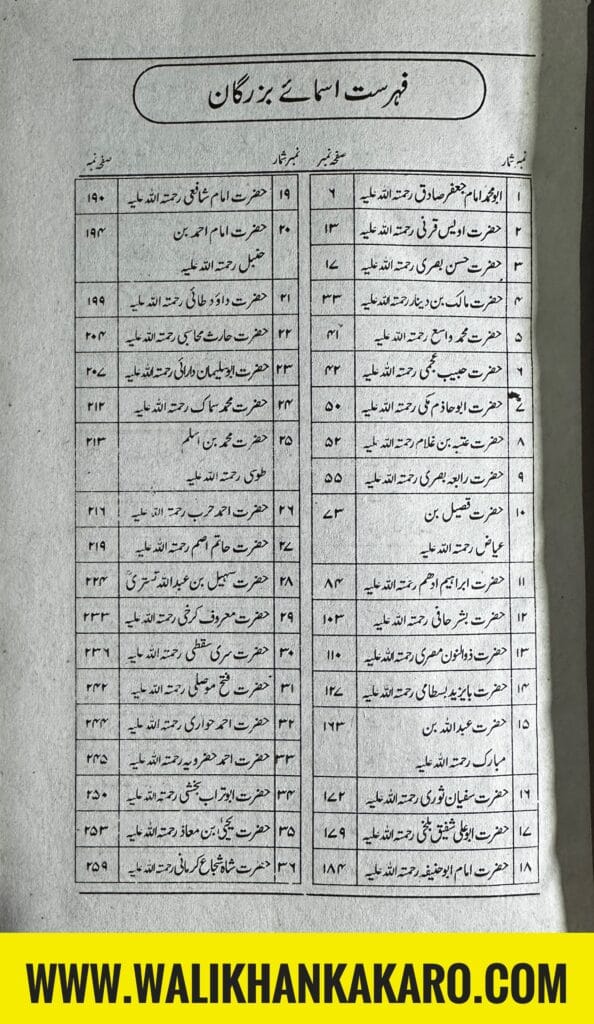 فہرست اسمائے بزرگان
نمبر شمار صفحہ نمبر
۱ ابو محمد امام جعفر صادق رحمتہ اللہ علیہ ۶
۲ حضرت اویس قرنی رحمتہ اللہ علیہ ۱۳
۳ حضرت حسن بصری رحمتہ اللہ علیہ ۱۷
۴ حضرت مالک بن دینار رحمتہ اللہ علیہ ۳۳
۵ حضرت محمد واسع رحمتہ اللہ علیہ ۴۱
۶ حضرت حبیب عجمی رحمتہ اللہ علیہ ۴۲
۷ حضرت ابو حازم مکی رحمتہ اللہ علیہ ۵۰
۸ حضرت عتبہ بن غلام رحمتہ اللہ علیہ ۵۲
۹ حضرت رابعہ بصری رحمتہ اللہ علیہ ۵۵
۱۰ حضرت فصیل بن ۷۳
عیاض رحمتہ اللہ علیہ
۱۱ حضرت ابراہیم ادھم رحمتہ اللہ علیہ ۸۴
۱۲ حضرت بشر حافی رحمتہ اللہ علیہ ۱۰۳
۱۳ حضرت ذوالنون مصری رحمتہ اللہ علیہ ۱۱۰
۱۴ حضرت بایزید بسطامی رحمتہ اللہ علیہ ۱۲۷
۱۵ حضرت عبداللہ بن ۱۶۳
مبارک رحمتہ اللہ علیہ
۱۶ حضرت سفیان ثوری رحمتہ اللہ علیہ ۱۷۲
۱۷ حضرت ابو علی شفیق بلخی رحمتہ اللہ علیہ ۱۷۹
۱۸ حضرت امام ابو حنیفہ رحمتہ اللہ علیہ ۱۸۴
نمبر شمار صفحہ نمبر
۱۹ حضرت امام شافعی رحمتہ اللہ علیہ ۱۹۰
۲۰ حضرت امام احمد بن ۱۹۴
حنبل رحمتہ اللہ علیہ
۲۱ حضرت داؤد طائی رحمتہ اللہ علیہ ۱۹۹
۲۲ حضرت حارث محاسبی رحمتہ اللہ علیہ ۲۰۴
۲۳ حضرت ابو سلیمان دارائی رحمتہ اللہ علیہ ۲۰۷
۲۴ حضرت محمد سماک رحمتہ اللہ علیہ ۲۱۲
۲۵ حضرت محمد بن اسلم ۲۱۳
طوسی رحمتہ اللہ علیہ
۲۶ حضرت احمد حرب رحمتہ اللہ علیہ ۲۱۶
۲۷ حضرت حاتم اصم رحمتہ اللہ علیہ ۲۱۹
۲۸ حضرت سہیل بن عبداللہ تستریؒ ۲۲۴
۲۹ حضرت معروف کرخی رحمتہ اللہ علیہ ۲۳۳
۳۰ حضرت سری سقطی رحمتہ اللہ علیہ ۲۳۶
۳۱ حضرت فتح موصلی رحمتہ اللہ علیہ ۲۴۲
۳۲ حضرت احمد حواری رحمتہ اللہ علیہ ۲۴۴
۳۳ حضرت احمد حضرویہ رحمتہ اللہ علیہ ۲۴۵
۳۴ حضرت ابو تراب بخشی رحمتہ اللہ علیہ ۲۵۰
۳۵ حضرت یحییٰ بن معاذ رحمتہ اللہ علیہ ۲۵۳
۳۶ حضرت شاہ شجاع کرمانی رحمتہ اللہ علیہ ۲۵۹
WWW.WALIKHANKAKARO.COM